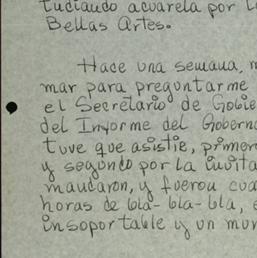 tudiando acuarela por
Bellas Artes.
Hace una semana,
mar para preguntarme
el Secretario de Gobie
del Informe del Goberna
tuve que asistir, primer
y segundo por la invita
mandaron, y fueron cua
horas de bla-bla-bla,
insoportable y un mun